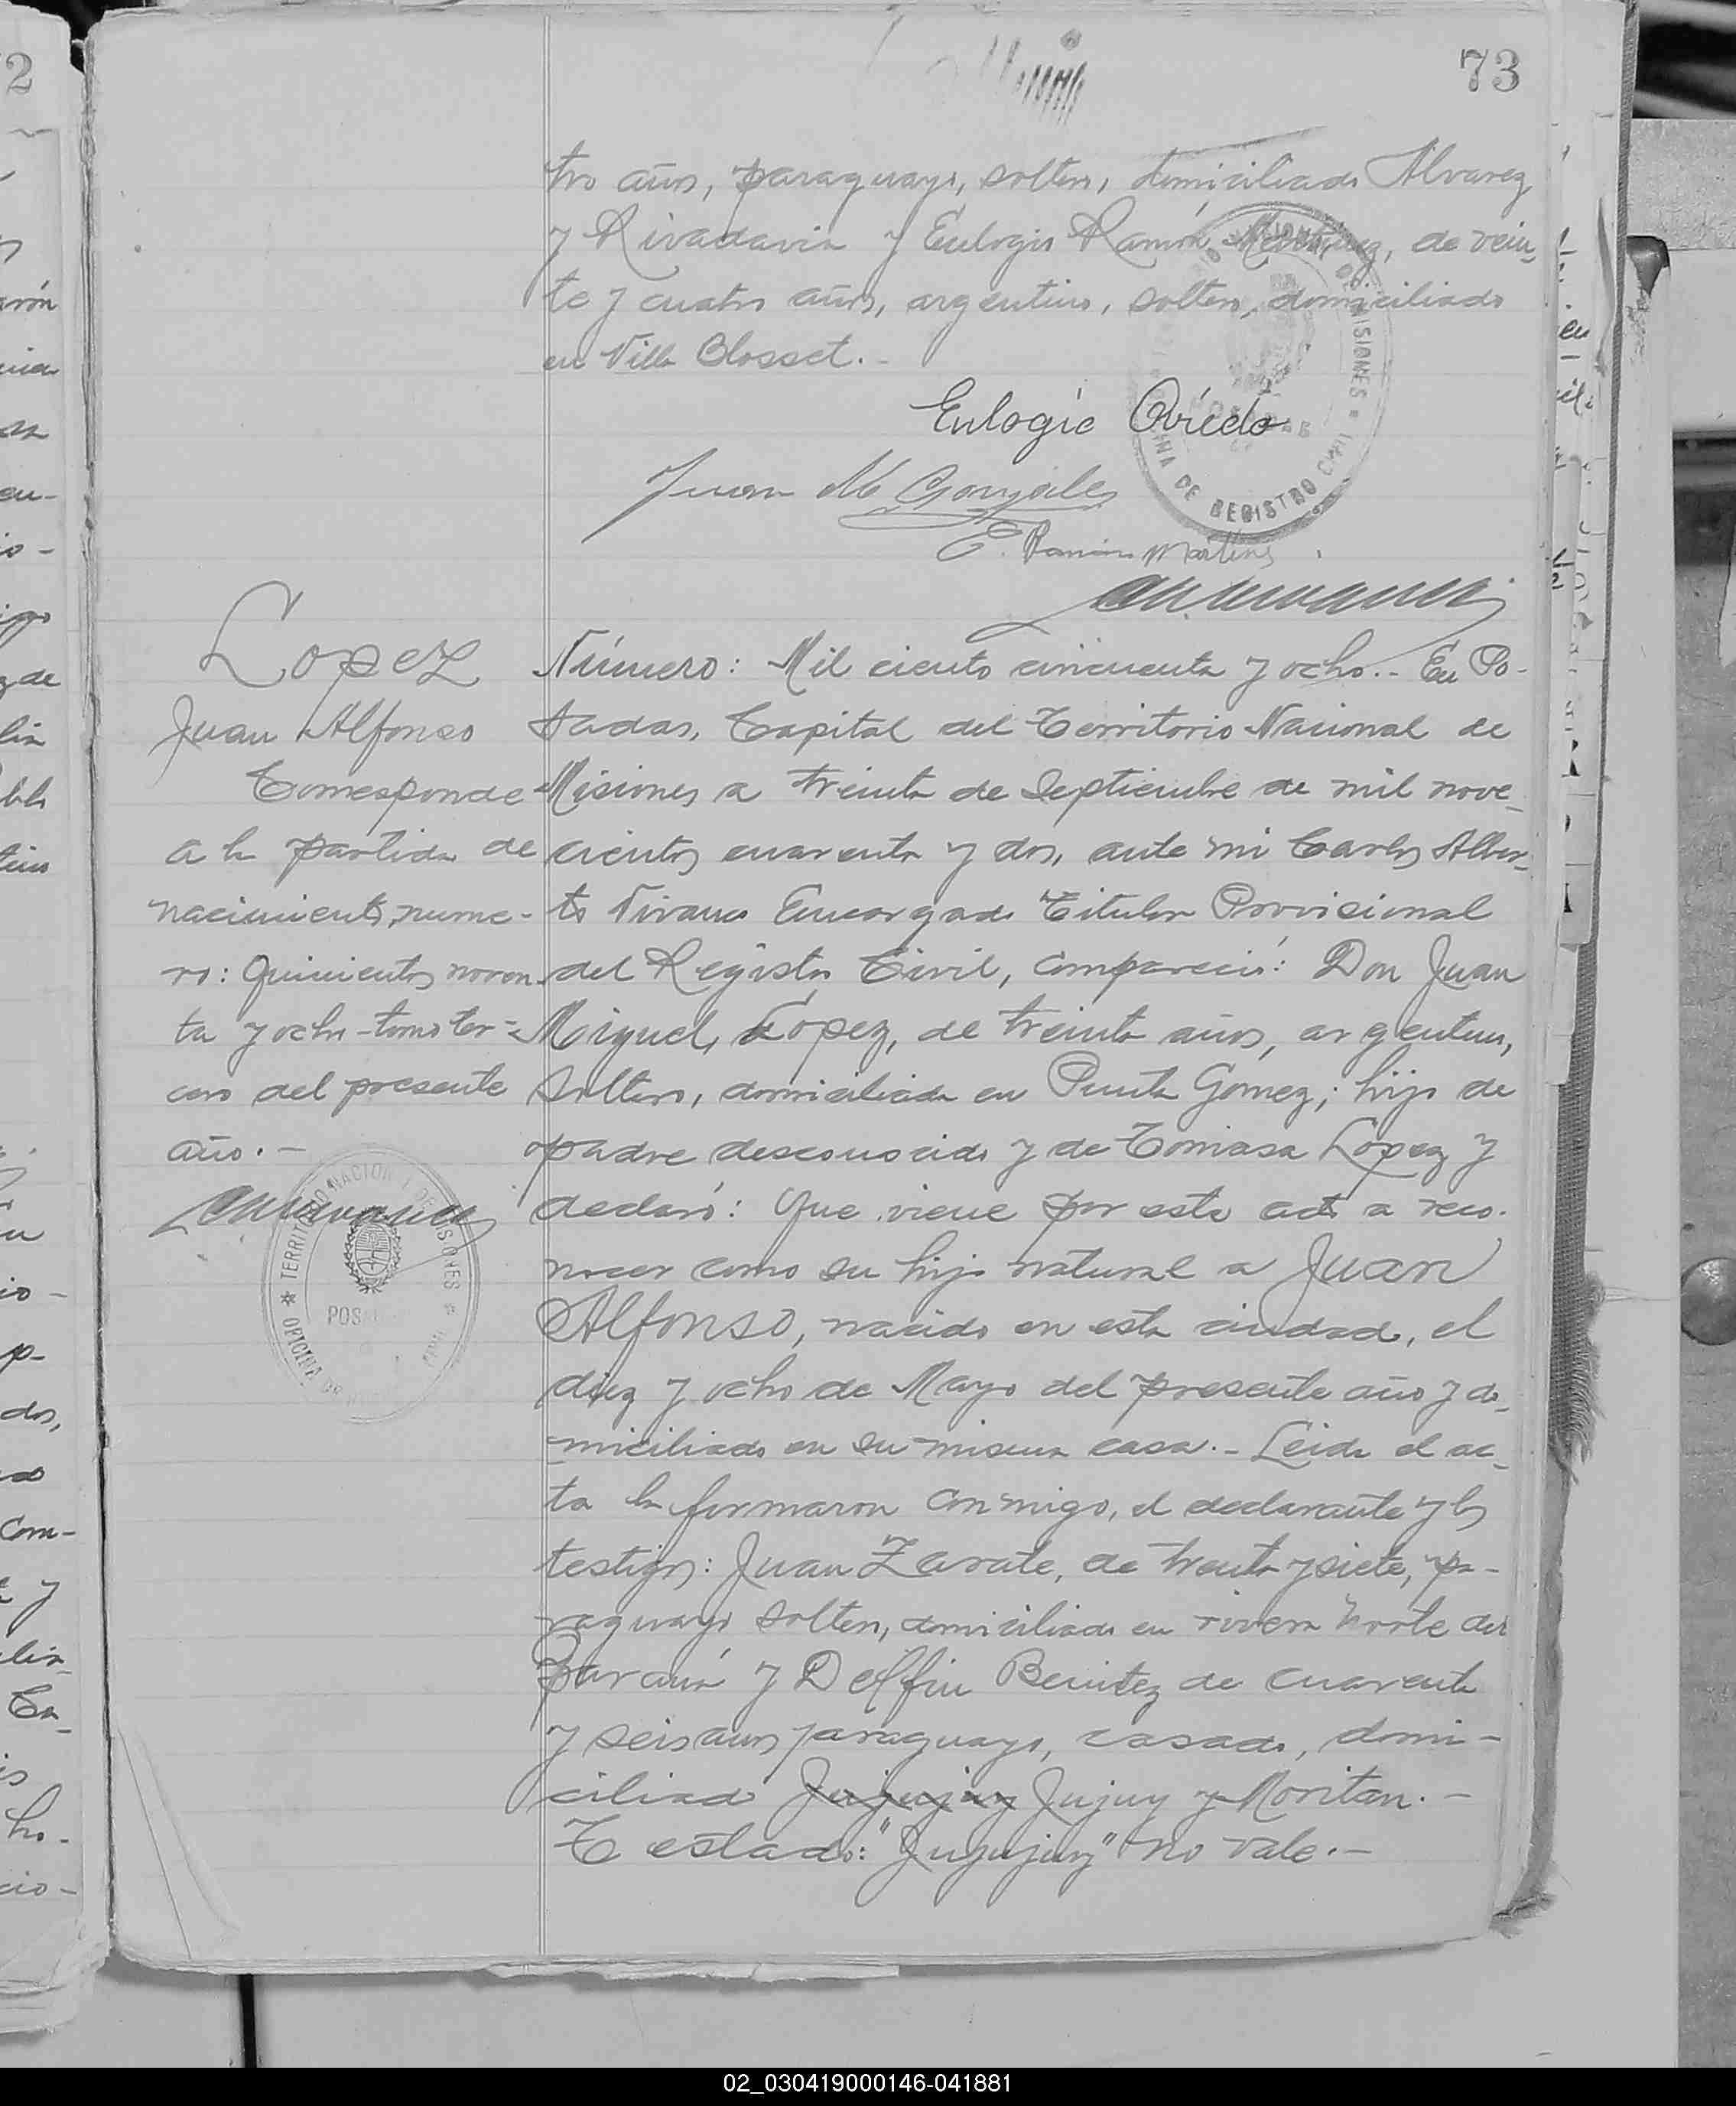 73
tro años, paraguayo, soltero, domiciliado Alvarez
y Rivadavia y Eulogio Ramón de vein-
te y cuatro años, argentino, soltero, domiciliado
en Villa Blosset.-
Eulogio Oviedo
Juan M Gonzalez
E. Ramón Martinez
Lopez
Juan Alfonso
Corresponde
a la partida de
nacimiento, nume-
ro: Quinientos noven-
ta y ocho - tomo ter-
cero del presente
año.-
TERRITORIO NACIONAL DE MISIONES
OFICINA DE
POS
Número: Mil ciento cincuenta y ocho.- En Po-
sadas, Capital del Territorio Nacional de
Misiones a treinta de Septiembre de mil nove-
cientos cuarenta y dos, ante mi Carlos Alber-
to Vivanco Encargado Titular Provisional
del Registro Civil, compareció: Don Juan
Miguel Lopez, de treinta años, argentino,
soltero, domiciliado en Punta Gomez; hijo de
padre desconocido y de Tomasa Lopez y
declaró: Que viene por este acto a reco-
nocer como su hijo natural a Juan
Alfonso, nacido en esta ciudad, el
diez y ocho de Mayo del presente año y do-
miciliado en su misma casa.- Leida el ac-
ta la firmaron conmigo, el declarante y los
testigos: Juan Zarate, de treinta y siete, pa-
raguayo soltero, domiciliado en rivera norte del
Paraná y Delfin Benitez de cuarenta
y seis años paraguayo, casado, domi-
ciliado Jujujuy Jujuy y Moritan.-
Testado: "Jujujuy" no vale.-
02_030419000146-041881